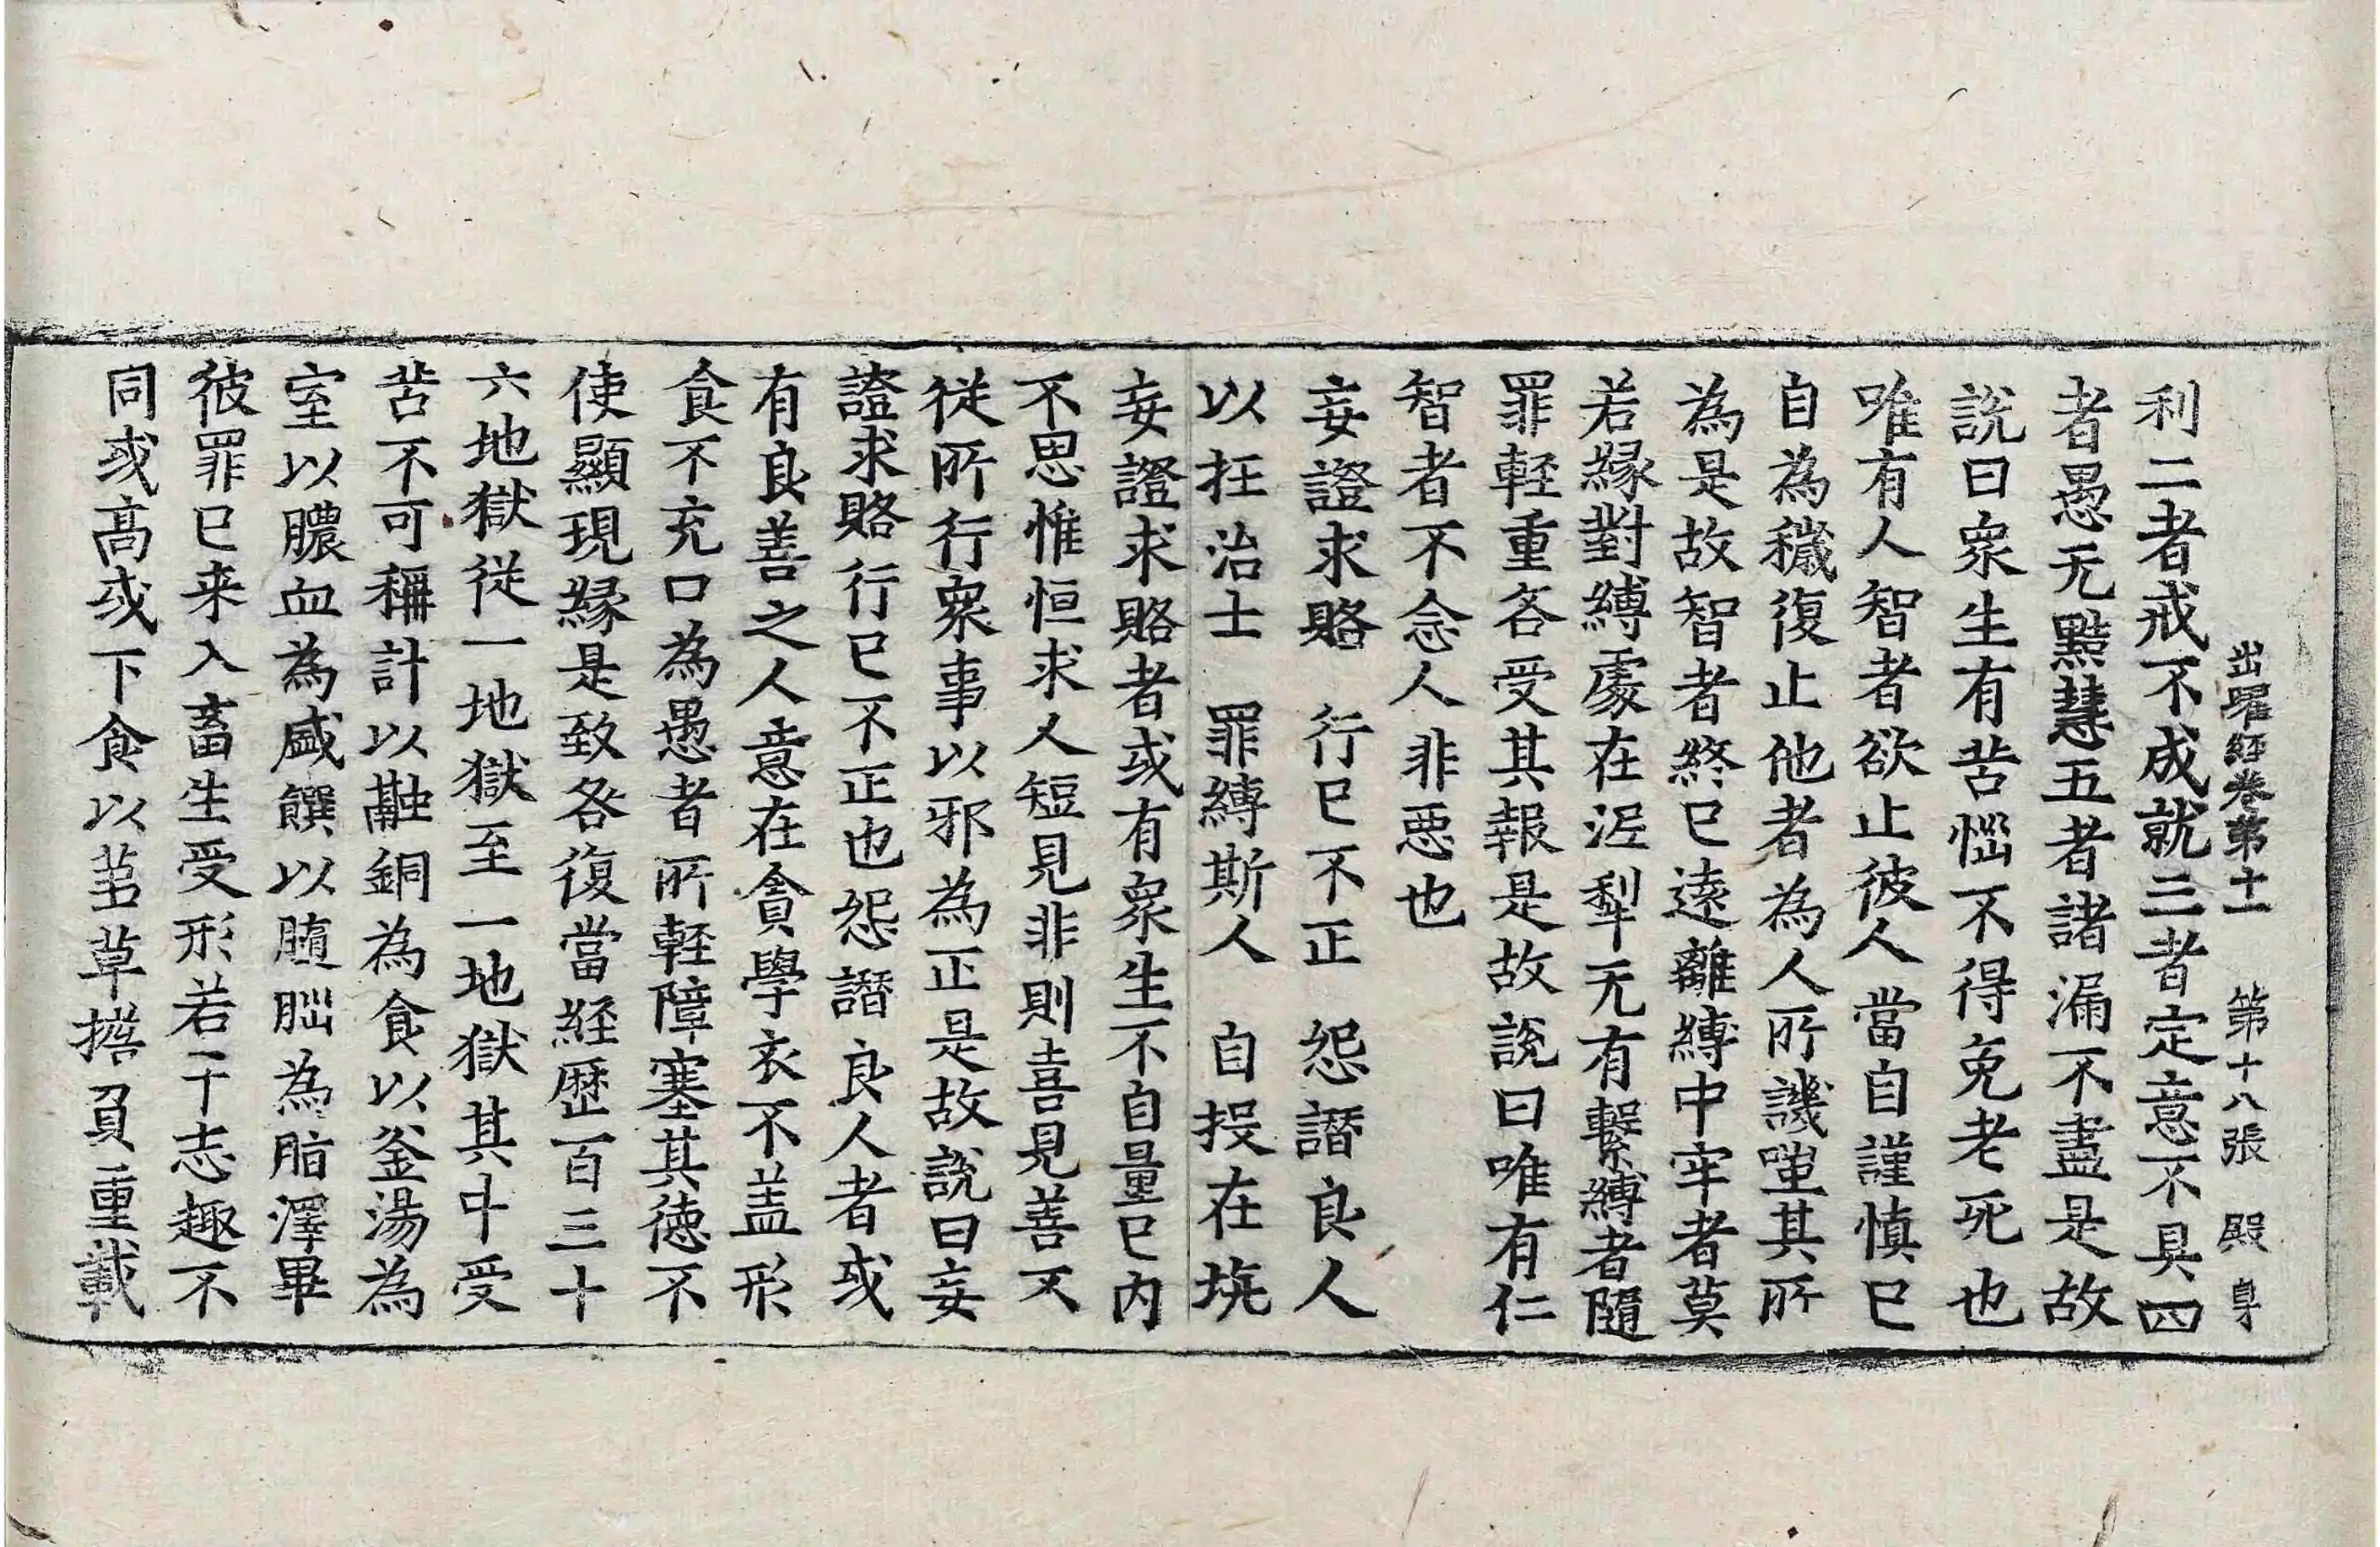 出曜經卷第十一 第十八張 殿
利二者戒不成就三者定意不具四
者愚无黠慧五者諸漏不盡是故
說曰衆生有苦惱不得免老死也
唯有人智者欲止彼人當自謹慎已
自為穢復止他者為人所譏嗤其所
為是故智者終已遠離縛中牢者莫
若緣對縛處在泥犁无有繫縛者隨
罪輕重各受其報是故說曰唯有仁
智者不念人非惡也
妄證求賂 行已不正 怨譖良人
以抂治士 罪縛斯人 自投在坑
妄證求賂者或有衆生不自量已內
不思惟恒求人短見非則喜見善不
從所行衆事以邪為正是故說曰妄
證求賂行已不正也怨譖良人者或
有良善之人意在貪學衣不盖形
食不充口為愚者所輕障塞其德不
使顯現緣是致各復當経歷百三十
六地獄從一地獄至一地獄其中受
苦不可稱計以融銅為食以釜湯為
室以膿血為盛饌以髓腦為脂澤畢
彼罪已来入畜生受形若干志趣不
同或高或下食以蒭草擔負重載